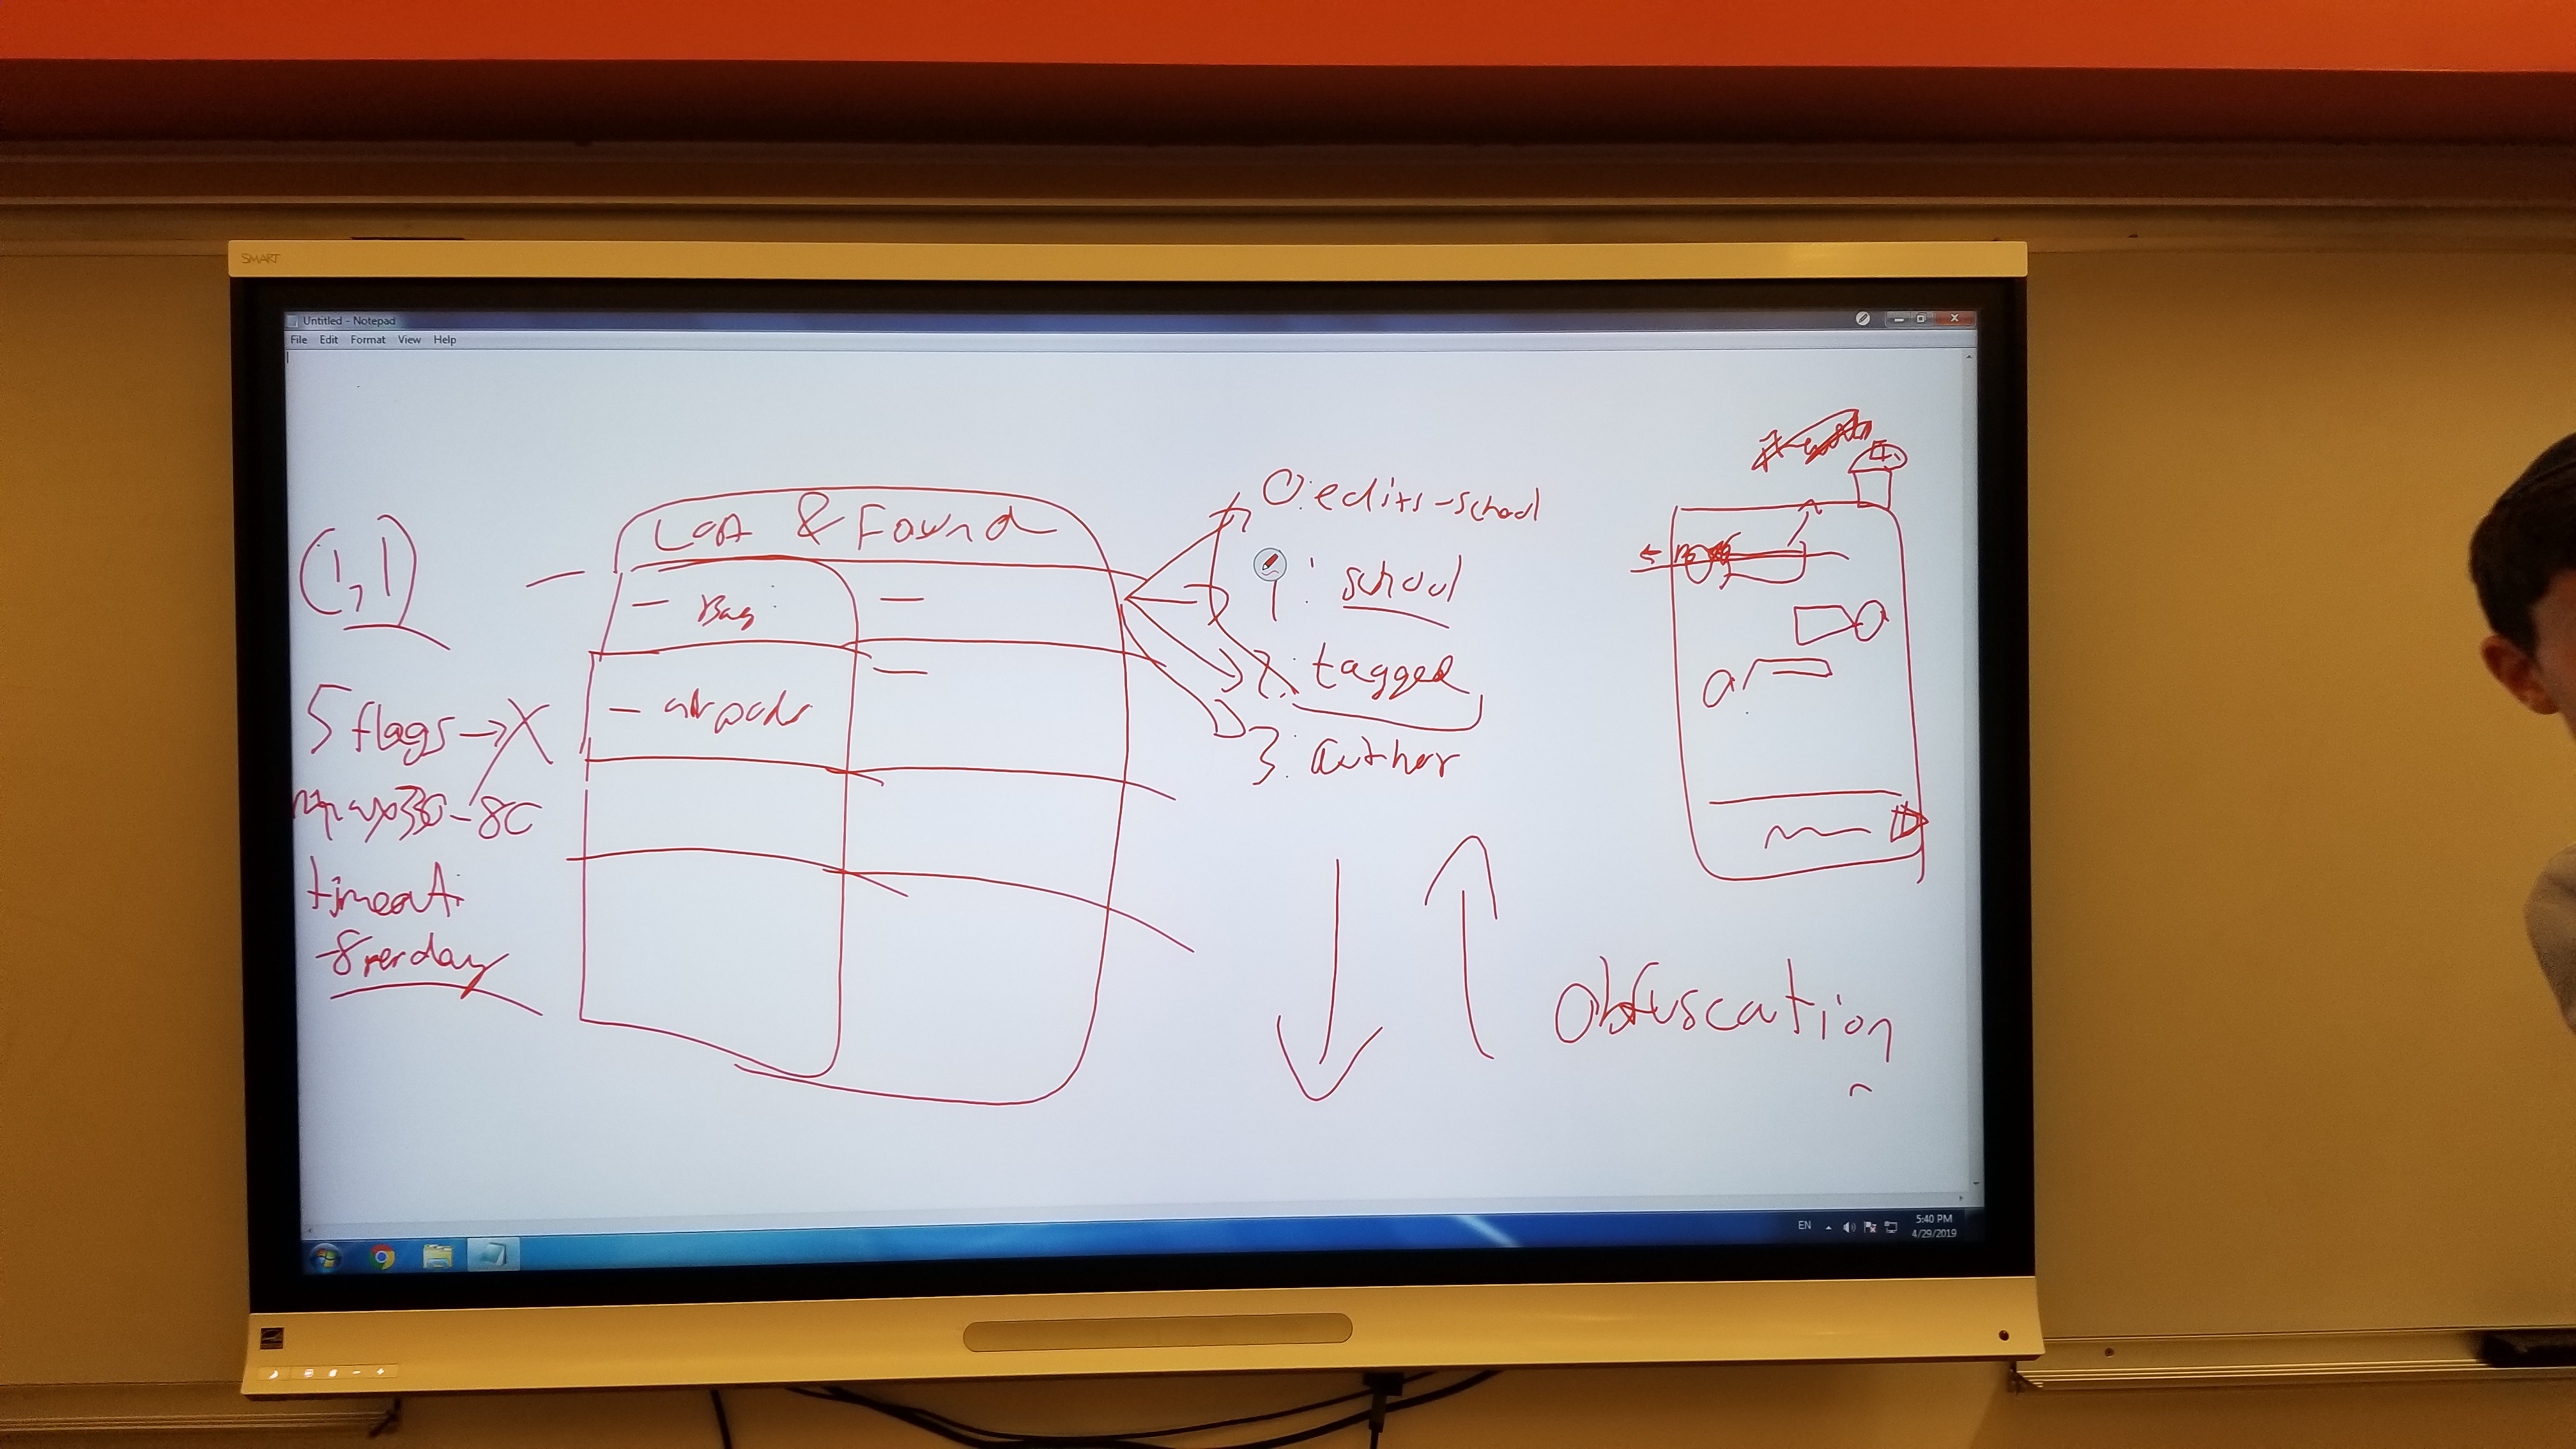 SMART
Untitled - Notepad
File Edit Format View Help
Lost & Found
- Bag
- airpods
(1,1)
5 flags → X
timeout:
-8 per day
0: edits - school
1: school
2: tagged
3: author
obfuscation
EN
5:40 PM
4/29/2019